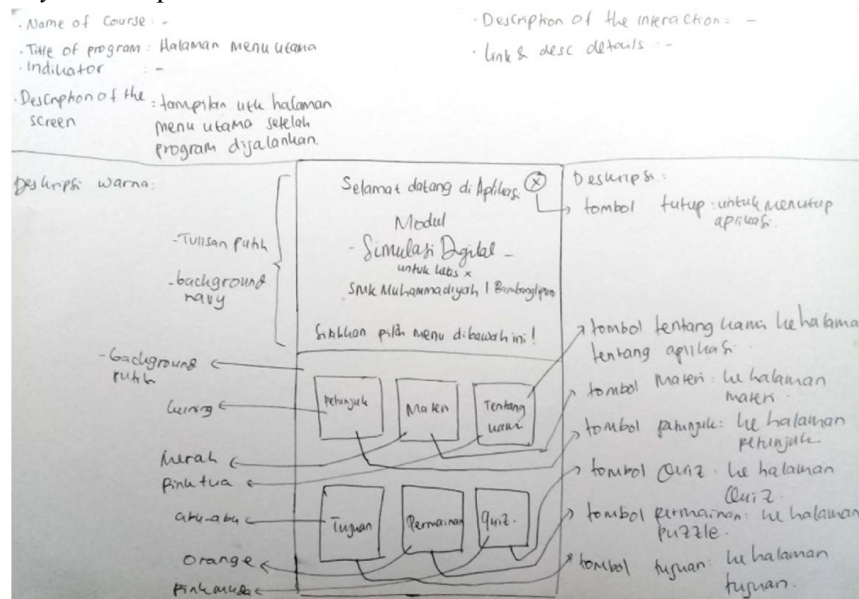 · Name of Course : -
· Title of program : Halaman menu utama
· Indikator : -
· Description of the screen : tampilan utk halaman
menu utama setelah
program dijalankan.
· Description of the interaction : -
· Link & desc details : -
Deskripsi warna :
- Tulisan putih
- background
navy
- background
putih
kuning
merah
Pink tua
abu-abu
orange
Pink muda
Selamat datang di Aplikasi X
Modul
- Simulasi Digital -
untuk kelas X
SMK Muhammadiyah 1 Bambanglipuro
Silahkan pilih menu dibawah ini !
Petunjuk Materi Tentang
kami
Tujuan Permainan Quiz.
Deskripsi :
tombol tutup : untuk menutup
aplikasi.
tombol tentang kami ke halama
tentang aplikasi
tombol Materi : ke halaman
materi.
tombol petunjuk : ke halaman
petunjuk.
tombol Quiz : ke halaman
Quiz.
tombol permainan : ke halaman
puzzle.
tombol tujuan : ke halaman
tujuan.